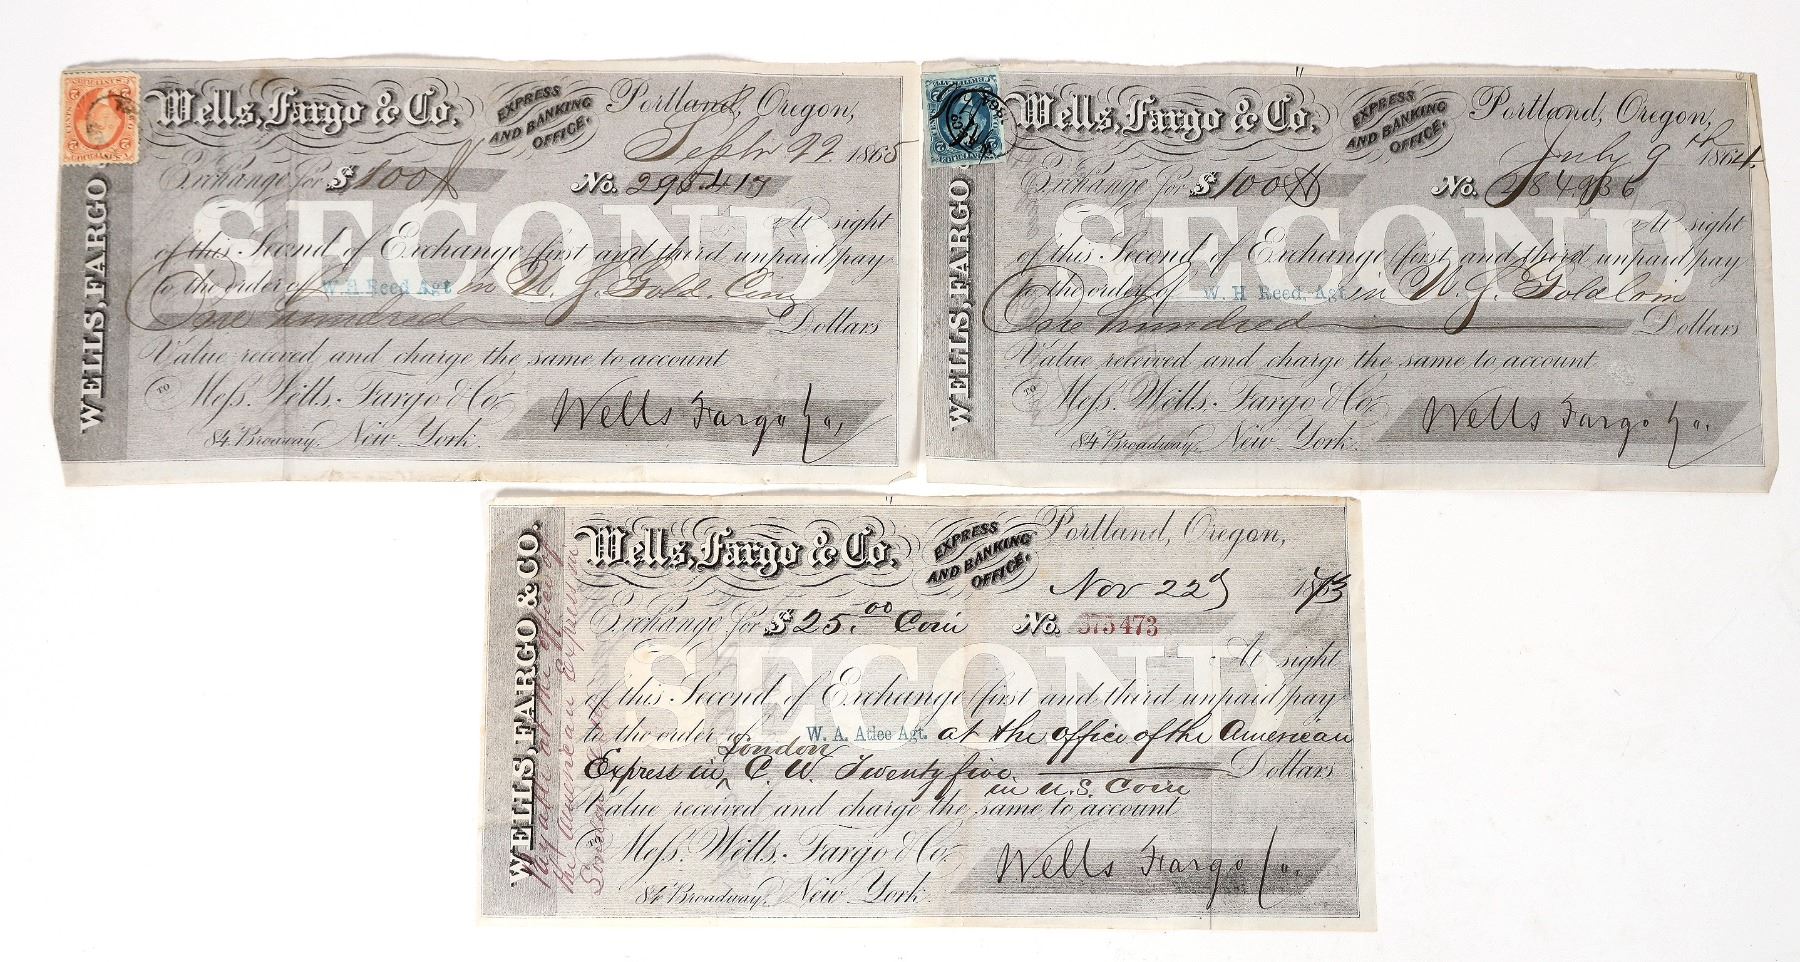 Wells, Fargo & Co. EXPRESS AND BANKING OFFICE. Portland, Oregon,
Septr 22 1865
Exchange for $ 100 No. 290417
SECOND
At sight
of this Second of Exchange (first and third unpaid) pay
to the order of W. H. Reed Agt in U. S. Gold Coin
One hundred Dollars
Value received and charge the same to account
TO Mess. Wells, Fargo & Co.
84 Broadway, New York.
Wells Fargo & Co.
WELLS, FARGO
Wells, Fargo & Co. EXPRESS AND BANKING OFFICE. Portland, Oregon,
July 9th 1864
Exchange for $ 100 No. 284936
SECOND
At sight
of this Second of Exchange (first and third unpaid) pay
to the order of W. H Reed, Agt in U. S. Gold Coin
One hundred Dollars
Value received and charge the same to account
TO Mess. Wells, Fargo & Co.
84 Broadway, New York.
Wells Fargo & Co.
WELLS, FARGO
Wells, Fargo & Co. EXPRESS AND BANKING OFFICE. Portland, Oregon,
Nov 22d 1873
Exchange for $ 25.00 Coin No. 373473
SECOND
At sight
of this Second of Exchange (first and third unpaid) pay
to the order of W. A. Atlee Agt. at the office of the American
Express in London C. W. Twenty five Dollars
in U.S. Coin
Value received and charge the same to account
TO Mess. Wells, Fargo & Co.
84 Broadway, New York.
Wells Fargo & Co.
WELLS, FARGO & CO.
Payable at the office of
the American Express in
London